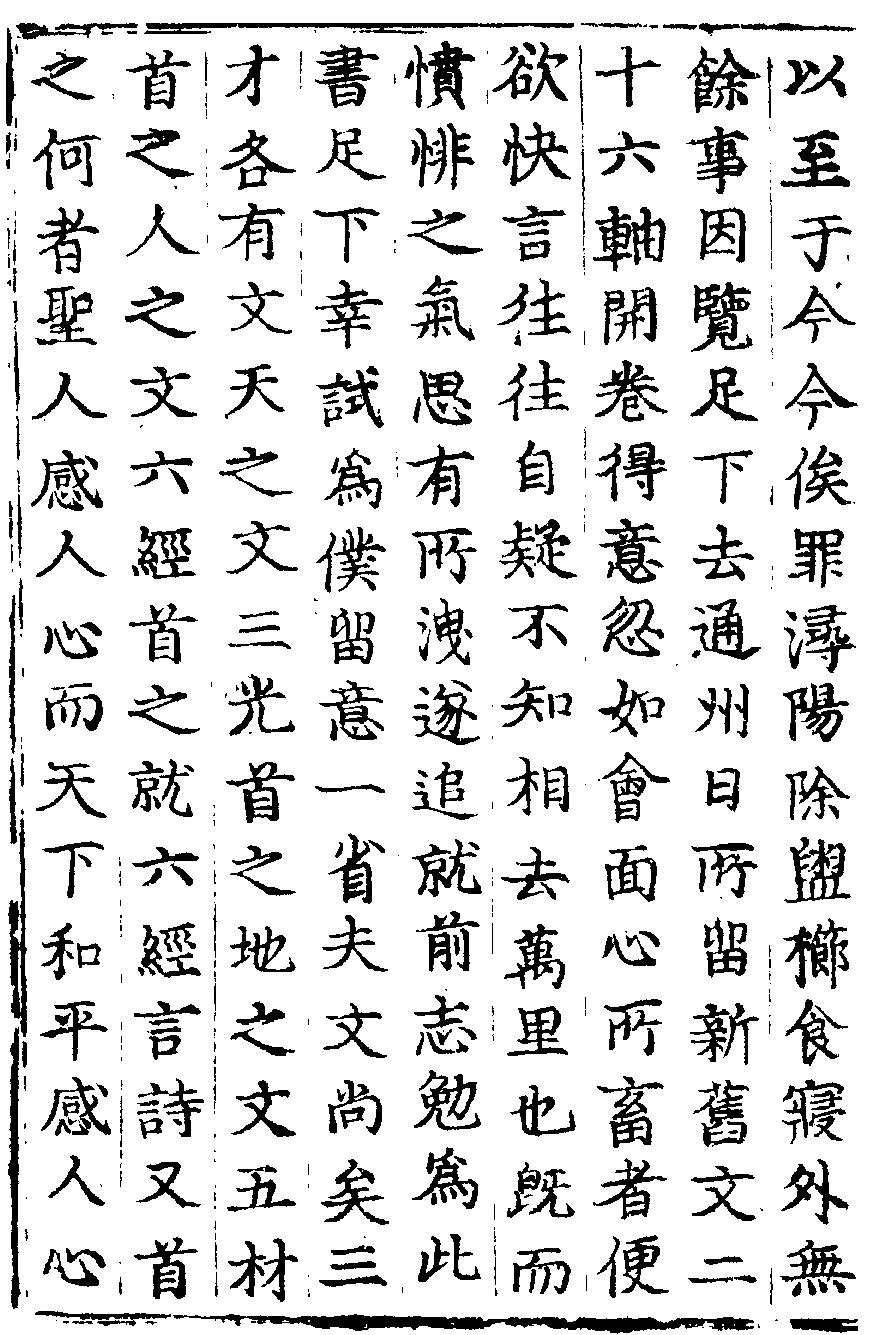 以至于今今俟罪潯陽除盥櫛食寢外無
餘事因覽足下去通州日所留新舊文二
十六軸開卷得意忽如會面心所畜者便
欲快言往往自疑不知相去萬里也既而
憤悱之氣思有所洩遂追就前志勉爲此
書足下幸試爲僕留意一省夫文尚矣三
才各有文天之文三光首之地之文五材
首之人之文六經首之就六經言詩又首
之何者聖人感人心而天下和平感人心